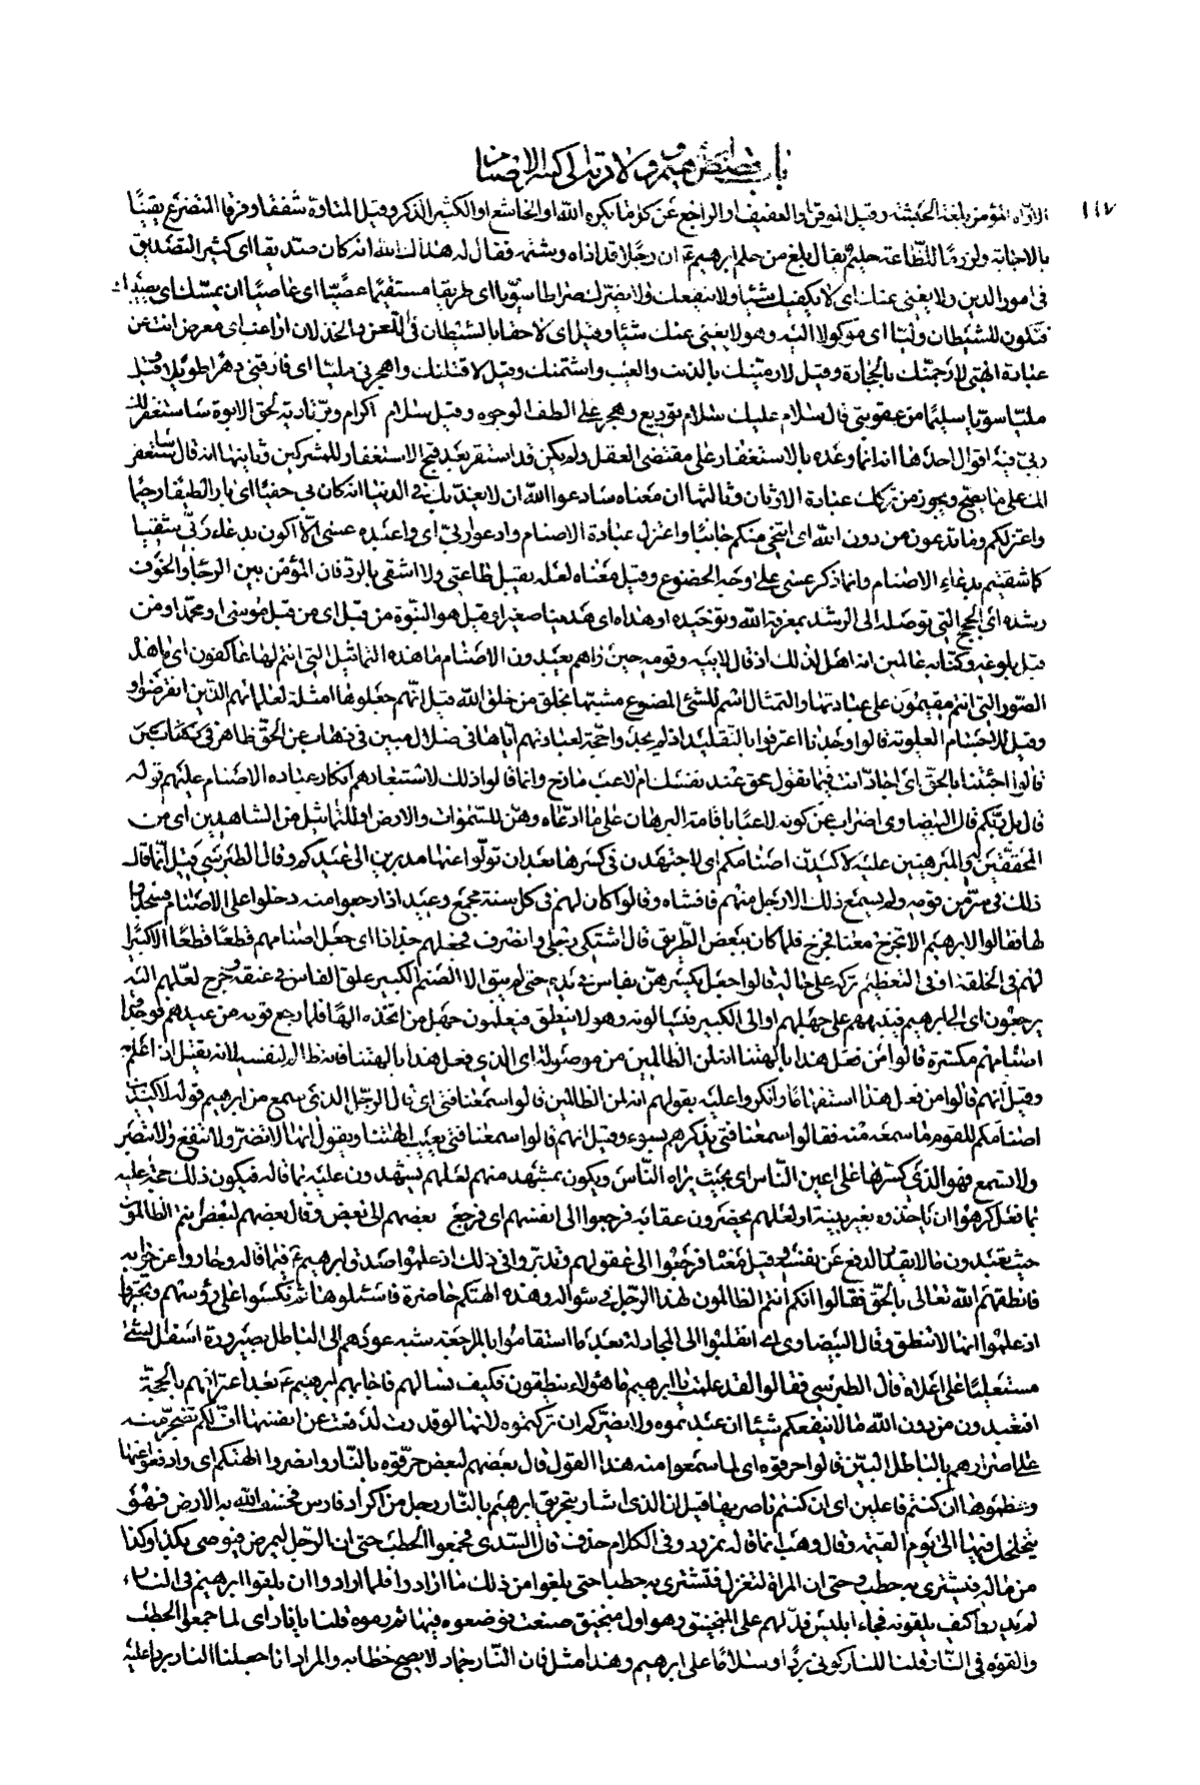 باب قصص ابرهيم ولادته الى كسر الاصنام
١١٧
الاوّاه المؤمن بلغة الحبشة وقيل الموقن او العفيف او الراجع عن كل ما يكره الله او الخاشع او الكثير الذكر وقيل المتاوه شفقا وفرقا المتضرع يقينا
بالاجابة ولزوما للطاعة حليم يقال بلغ من حلم ابرهيم ع ان رجلا قد اذاه وشتمه فقال له هداك الله انه كان صديقا اى كثير التصديق
فى امور الدين ولا يغنى عنك اى لا يكفيك شيئا ولا ينفعك ولا يضرك صراطا سويا اى طريقا مستقيما عصيا اى عاصيا ان يمسك اى يصيبك
فتكون للشيطان وليا اى موكولا اليه وهو لا يغنى عنك شيئا وقيل اى لاحقا بالشيطان فى اللعن والخذلان اراغب اى معرض انت عن
عبادة الهتى لارجمنك بالحجارة وقيل لارمينك بالذنب والعيب واشتمنك وقيل لاقتلنك واهجرنى مليا اى فارقنى دهرا طويلا وقيل
مليا سويا سليما من عقوبتى قال سلام عليك سلام توديع وهجر على الطف الوجوه وقيل سلام اكرام وبر تادية لحق الابوة ساستغفر لك
ربى فيه اقوال احدها انه انما وعده بالاستغفار على مقتضى العقل ولم يكن قد استقر بعد قبح الاستغفار للمشركين وثانيها انه قال ساستغفر
لك على ما يصح ويجوز من تركك عبادة الاوثان وثالثها ان معناه سادعو الله ان لا يعذبك فى الدنيا انه كان بى حفيا اى بارا لطيفا رحيما
واعتزلكم وما تدعون من دون الله اى اتنحى منكم جانبا واعتزل عبادة الاصنام وادعو ربى اى واعبده عسى الا اكون بدعاء ربى شقيا
كما شقيتم بدعاء الاصنام وانما ذكر عسى على وجه الخضوع وقيل معناه لعله يقبل طاعتى ولا اشقى بالرد فان المؤمن بين الرجاء والخوف
رشده اى الحجج التى توصله الى الرشد بمعرفة الله وتوحيده او هداه اى هديناه صغيرا وقيل هو النبوة من قبل اى من قبل موسى او محمد او من
قبل بلوغه وكنا به عالمين انه اهل لذلك اذ قال لابيه وقومه حين راهم يعبدون الاصنام ما هذه التماثيل التى انتم لها عاكفون اى ما هذه
الصور التى انتم مقيمون على عبادتها والتمثال اسم للشئ المصنوع مشبها بخلق من خلق الله قيل انهم جعلوها امثلة لعلمائهم الذين انقرضوا و
وقيل للاجسام العلوية قالوا وجدنا اعترفوا بالتقليد اذ لم يجدوا حجة لعبادتهم اياها فى ضلال مبين فى ذهاب عن الحق ظاهر
قالوا اجئتنا بالحق اى اجاد انت فيما تقول محق عند نفسك ام لاعب مازح وانما قالوا ذلك لاستبعادهم انكار عبادة الاصنام عليهم قوله
قال بل ربكم قال البيضاوى اضراب عن كونه لاعبا باقامة البرهان على ما ادعاه وهن للسموات والارض او للتماثيل من الشاهدين اى من
المحققين له والمبرهنين عليه لاكيدن اصنامكم اى لاجتهدن فى كسرها بعد ان تولوا عنها مدبرين الى عيدكم وقال الطبرسى قيل انما قال
ذلك فى سر من قومه ولم يسمع ذلك الا رجل منهم فافشاه وقالوا كان لهم فى كل سنة مجمع وعيد اذا رجعوا منه دخلوا على الاصنام فسجدوا
لها فقالوا لابرهيم الا تخرج معنا فخرج فلما كان ببعض الطريق قال اشتكى رجلى وانصرف فجعلهم جذاذا اى جعل اصنامهم قطعا قطعا الا كبيرا
لهم فى الخلقة او فى التعظيم تركه على حاله قالوا جعل يكسرهن بفاس فى يده حتى لم يبق الا الصنم الكبير علق الفاس فى عنقه وخرج لعلهم اليه
يرجعون اى الى ابرهيم فينبههم على جهلهم او الى الكبير فيسالونه وهو لا ينطق فيعلمون جهل من اتخذه الها فلما رجع قومه من عيدهم فوجدوا
اصنامهم مكسرة قالوا من فعل هذا بالهتنا انه لمن الظالمين من موصولة اى الذى فعل هذا بالهتنا فانه ظالم لنفسه لانه يقتل اذا علم به
وقيل انهم قالوا من فعل هذا استفهاما وانكروا عليه بقولهم انه لمن الظالمين قالوا سمعنا فتى اى قال الرجل الذى سمع من ابرهيم قوله لاكيدن
اصنامكم للقوم ما سمعه منه فقالوا سمعنا فتى يذكرهم بسوء وقيل انهم قالوا سمعنا فتى يعيب الهتنا ويقول انها لا تضر ولا تنفع ولا تبصر
ولا تسمع فهو الذى كسرها على اعين الناس اى بحيث يراه الناس ويكون بمشهد منهم لعلهم يشهدون عليه بما قاله فيكون ذلك حجة عليه
بما فعل كرهوا ان ياخذوه بغير بينة او لعلهم يحضرون عقابه فرجعوا الى انفسهم اى فرجع بعضهم الى بعض وقال بعضهم لبعض انتم الظالمون
حيث تعبدون ما لا يقدر الدفع عن نفسه وقيل معناه فرجعوا الى عقولهم وتدبروا فى ذلك اذ علموا صدق ابرهيم ع فيما قاله وحاروا عن جوابه
فانطقهم الله تعالى بالحق فقالوا انكم انتم الظالمون لهذا الرجل فى سؤاله وهذه الهتكم حاضرة فاسئلوها ثم نكسوا على رؤسهم وتحيروا
اذ علموا انها لا تنطق وقال البيضاوى اى انقلبوا الى المجادلة بعد ما استقاموا بالمراجعة شبه عودهم الى الباطل بصيرورة اسفل الشئ
مستعليا على اعلاه قال الطبرسى فقالوا لقد علمت يا ابرهيم ما هؤلاء ينطقون فكيف نسالهم فاجابهم ابرهيم ع بعد اعترافهم بالحجة
افتعبدون من دون الله ما لا ينفعكم شيئا ان عبدتموه ولا يضركم ان تركتموه لانها لو قدرت لدفعت عن انفسها اف لكم تضجر منه
على اصرارهم بالباطل البين قالوا حرقوه اى لما سمعوا منه هذا القول قال بعضهم لبعض حرقوه بالنار وانصروا الهتكم اى وادفعوا عنها
وعظموها ان كنتم فاعلين اى ان كنتم ناصريها قيل ان الذى اشار بتحريق ابرهيم بالنار رجل من اكراد فارس فخسف الله به الارض فهو
يتجلجل فيها الى يوم القيمة وقال وهب انما قاله نمرود وفى الكلام حذف قال السدى فجمعوا الحطب حتى ان الرجل ليمرض فيوصى بكذا وكذا
من ماله فيشترى به حطب وحتى ان المراة لتغزل فتشترى به حطبا حتى بلغوا من ذلك ما ارادوا فلما ارادوا ان يلقوا ابرهيم فى النار
لم يدروا كيف يلقونه فجاء ابليس فدلهم على المنجنيق وهو اول منجنيق صنعت فوضعوه فيها ثم رموه قلنا يا نار اى لما جمعوا الحطب
والقوه فى النار قلنا للنار كونى بردا وسلاما على ابرهيم وهذا مثل فان النار جماد لا يصح خطابه والمراد انا جعلنا النار بردا عليه